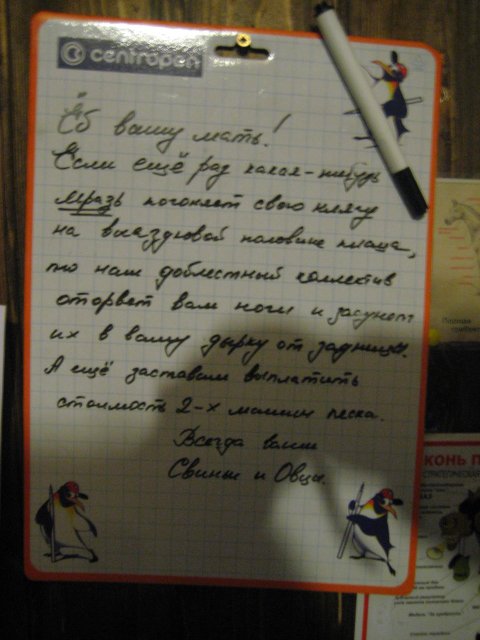 centropen
Ёб вашу мать!
Если ещё раз какая-нибудь
мразь погоняет свою клячу
на выездковой половине плаца,
то наш доблестный коллектив
оторвёт вам ноги и засунет
их в вашу дырку от задницы.
А ещё заставим выплатить
стоимость 2-х машин песка.
Всегда ваши
Свиньи и Овцы.
КОНЬ П